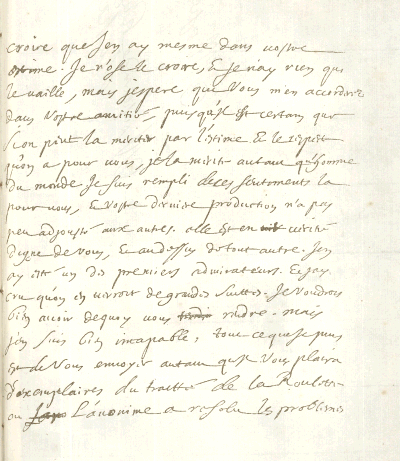 croire que J'en ay mesme dans vostre
estime. Je n'ose le croire, & je n'ay rien qui
le vaille, mais j'espere que Vous m'en accorderez
dans Vostre amitié, puis qu'il est certain que
si on peut la meriter par l'estime & le respect
qu'on a pour vous, je la merite autant qu'homme
du monde. Je suis rempli de ces sentiments la
pour vous, & Vostre derniere production n'a pas
peu adjousté aux autres. elle est en verité
digne de Vous, & au dessus de tout autre. J'en
ay esté un des premiers admirateurs. Et j'ay
cru qu'on en verroit de grandes suittes. Je Voudrois
bien avoir de quoy vous rendre. mais
j'en suis bien incapable, tout ce que je puis
est de Vous envoyer autant qu'il Vous plaira
d'exemplaires du traitté de la Roulette
ou L'anonime a resolu les problemes